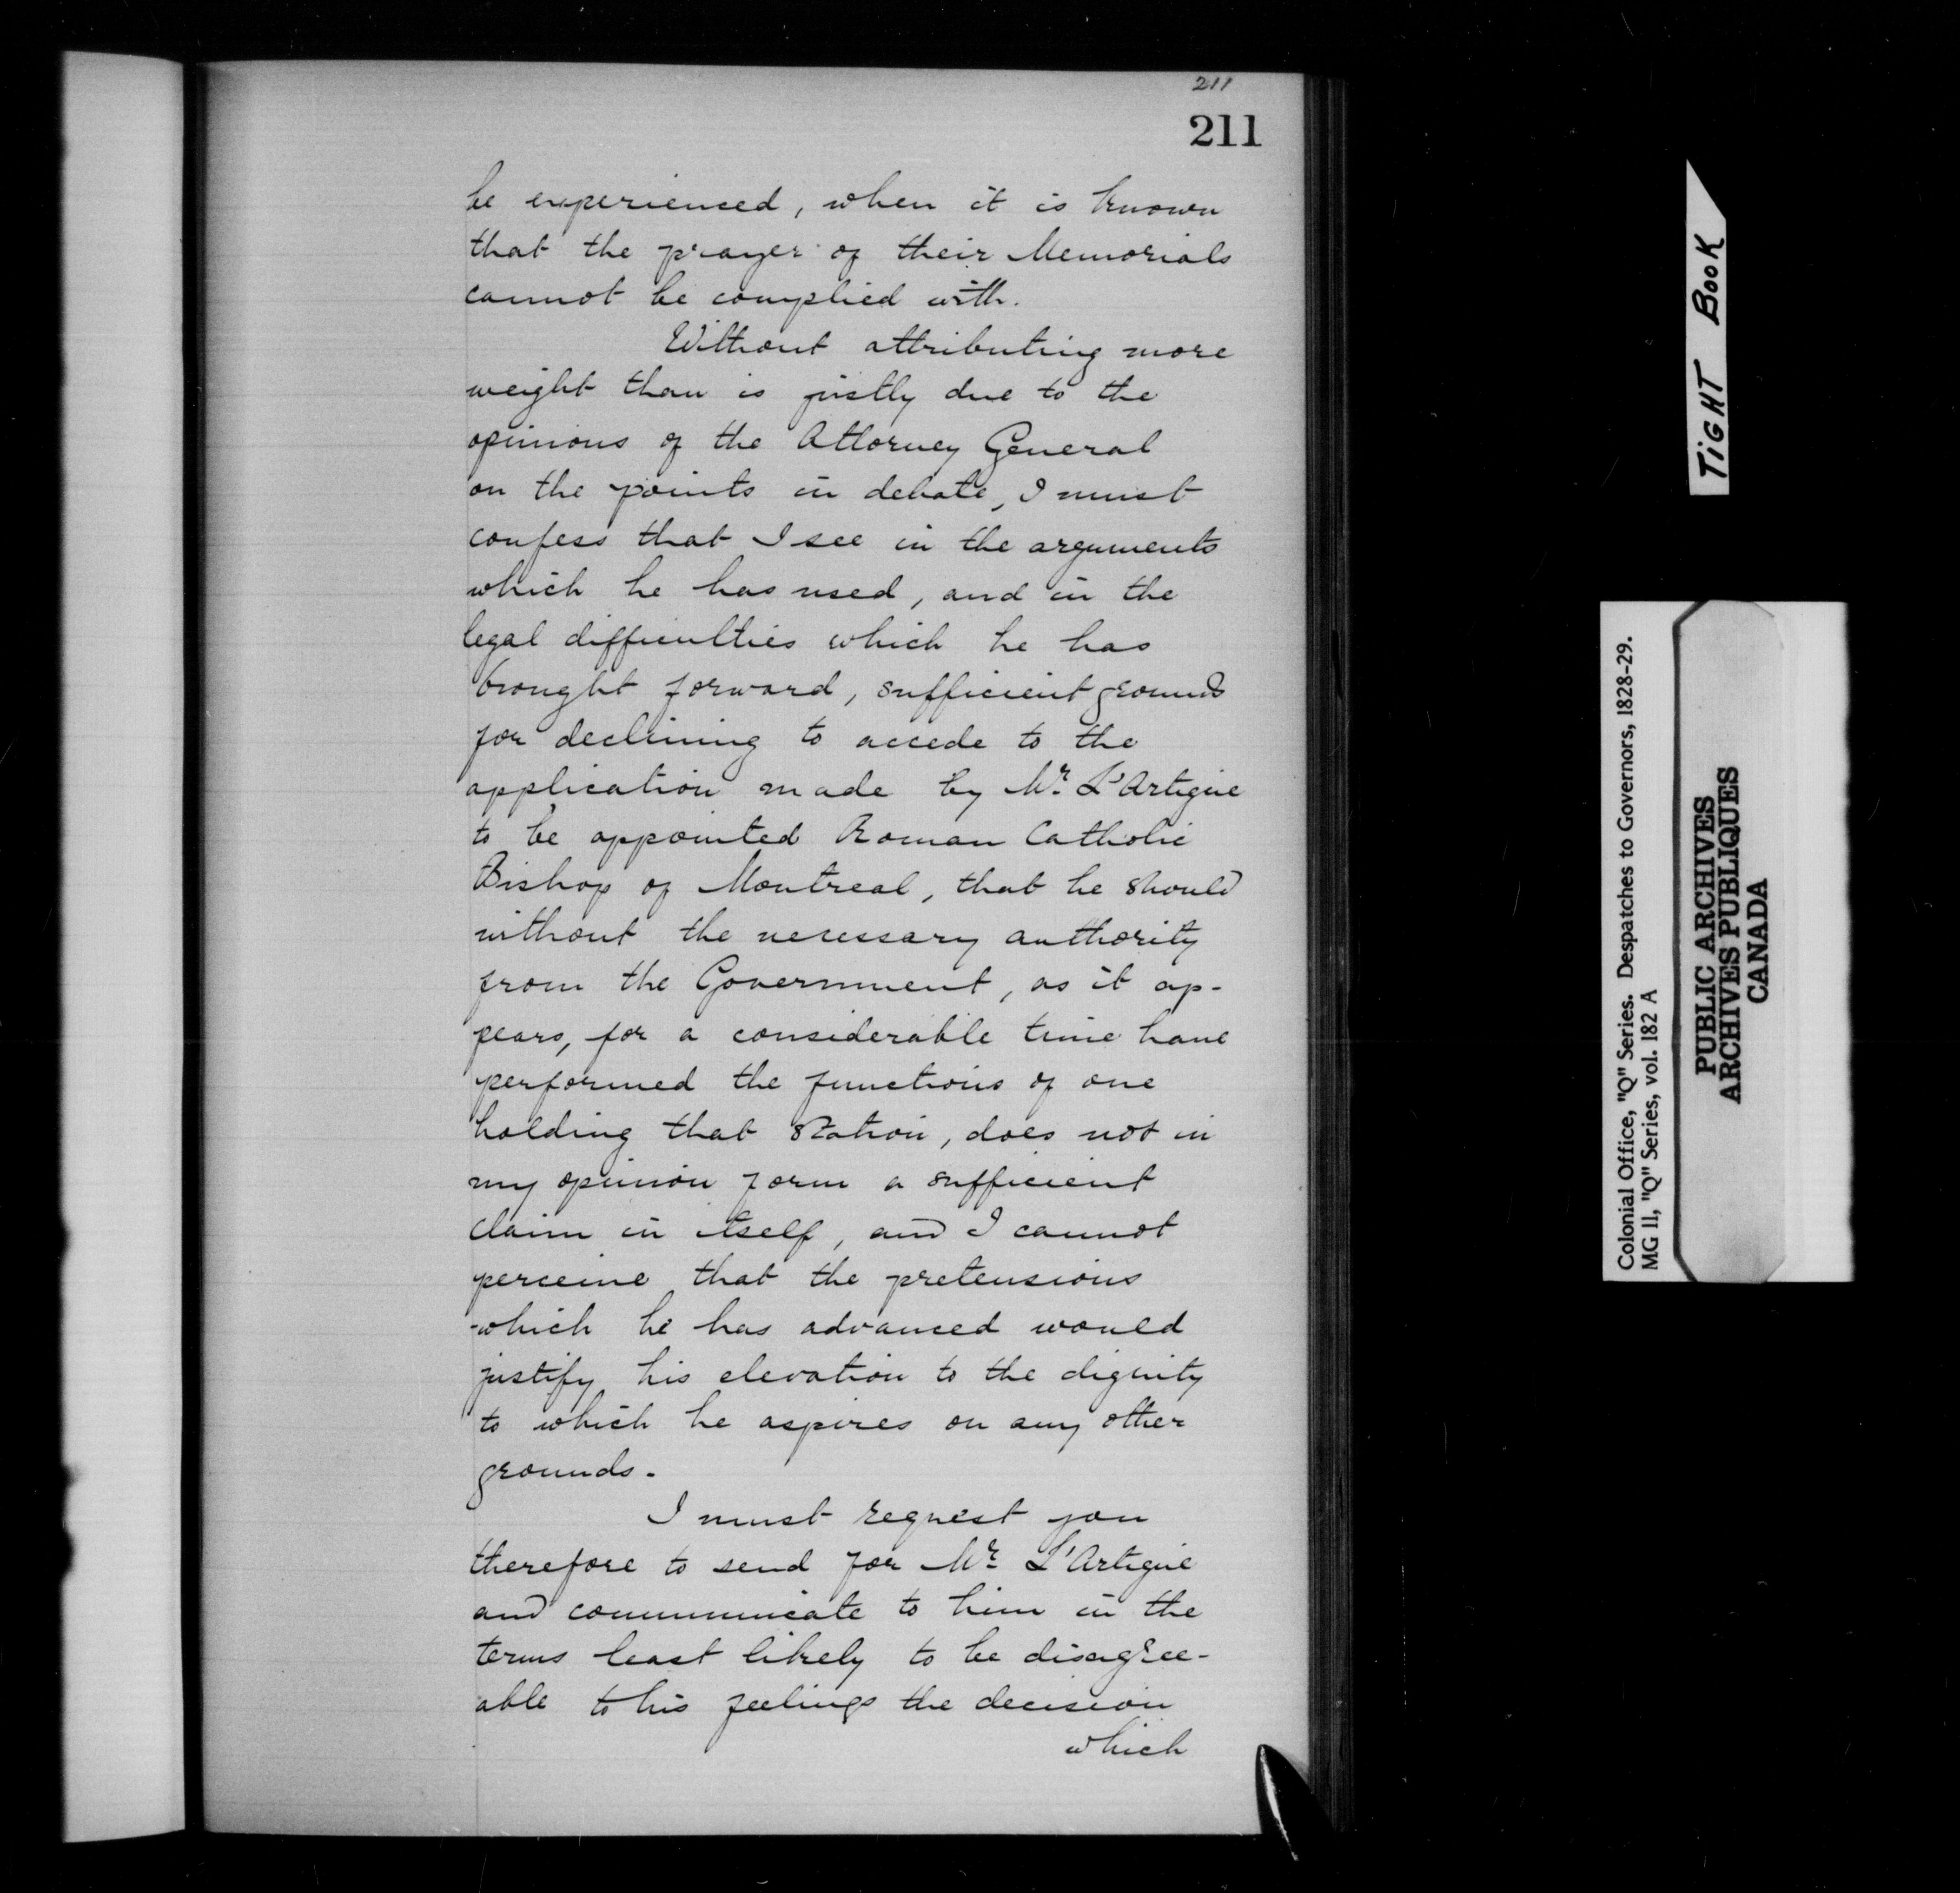 211
211
be experienced, when it is known
that the prayer of their Memorials
cannot be complied with.
Without attributing more
weight than is justly due to the
opinions of the Attorney General
on the points in debate, I must
confess that I see in the arguments
which he has used, and in the
legal difficulties which he has
brought forward, sufficient grounds
for declining to accede to the
application made by Mr. L'Artigue
to be appointed Roman Catholic
Bishop of Montreal, that he should
without the necessary authority
from the Government, as it ap-
pears, for a considerable time have
performed the functions of one
holding that station, does not in
my opinion form a sufficient
claim in itself, and I cannot
perceive that the pretensions
which he has advanced would
justify his elevation to the dignity
to which he aspires on any other
grounds.
I must request you
therefore to send for Mr. L'Artigue
and communicate to him in the
terms least likely to be disagree-
able to his feelings the decision
which
TIGHT BOOK
Colonial Office, "Q" Series. Despatches to Governors, 1828-29.
MG 11, "Q" Series, vol. 182 A
PUBLIC ARCHIVES
ARCHIVES PUBLIQUES
CANADA